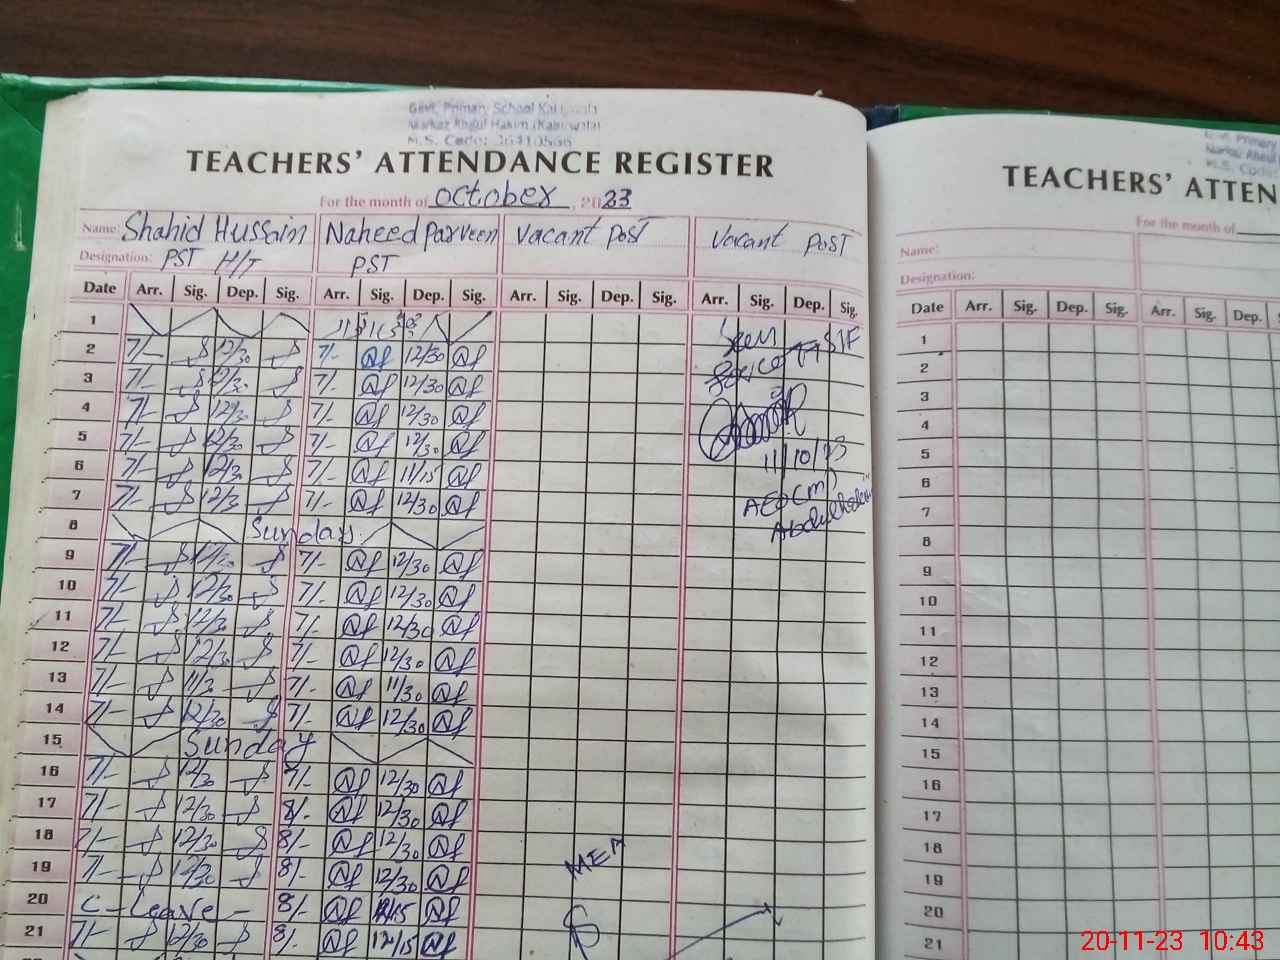 Govt. Primary School
Markaz Abdul Hakim (Kabirwala)
TEACHERS' ATTENDANCE REGISTER
For the month of October, 2023
Name: Shahid Hussain Naheed Parveen Vacant Post Vacant Post
Designation: PST H/T PST
Date Arr. Sig. Dep. Sig. Arr. Sig. Dep. Sig. Arr. Sig. Dep. Sig. Arr. Sig. Dep. Sig.
1
2 7/- 12/30 7/- 12/30
3 7/- 12/30 7/- 12/30
4 7/- 12/30 7/- 12/30
5 7/- 12/30 7/- 12/30
6 7/- 12/30 7/- 11/15
7 7/- 12/30 7/- 12/30
8 Sunday
9 7/- 7/- 12/30
10 7/- 12/30 7/- 12/30
11 7/- 12/30 7/- 12/30
12 7/- 12/30 7/- 12/30
13 7/- 11/30 7/- 11/30
14 7/- 12/30 7/- 12/30
15 Sunday
16 7/- 12/30 7/- 12/30
17 7/- 12/30 8/- 12/30
18 7/- 12/30 8/- 12/30
19 7/- 12/30 8/- 12/30
20 C-Leave- 8/-
21 7/- 12/30 8/- 12/15
Seen
11/10/23
AEO (M)
MEA
TEACHERS' ATTEN
For the month of
Name:
Designation:
Date Arr. Sig. Dep. Sig. Arr. Sig. Dep.
1
2
3
4
5
6
7
8
9
10
11
12
13
14
15
16
17
18
19
20
21
20-11-23 10:43